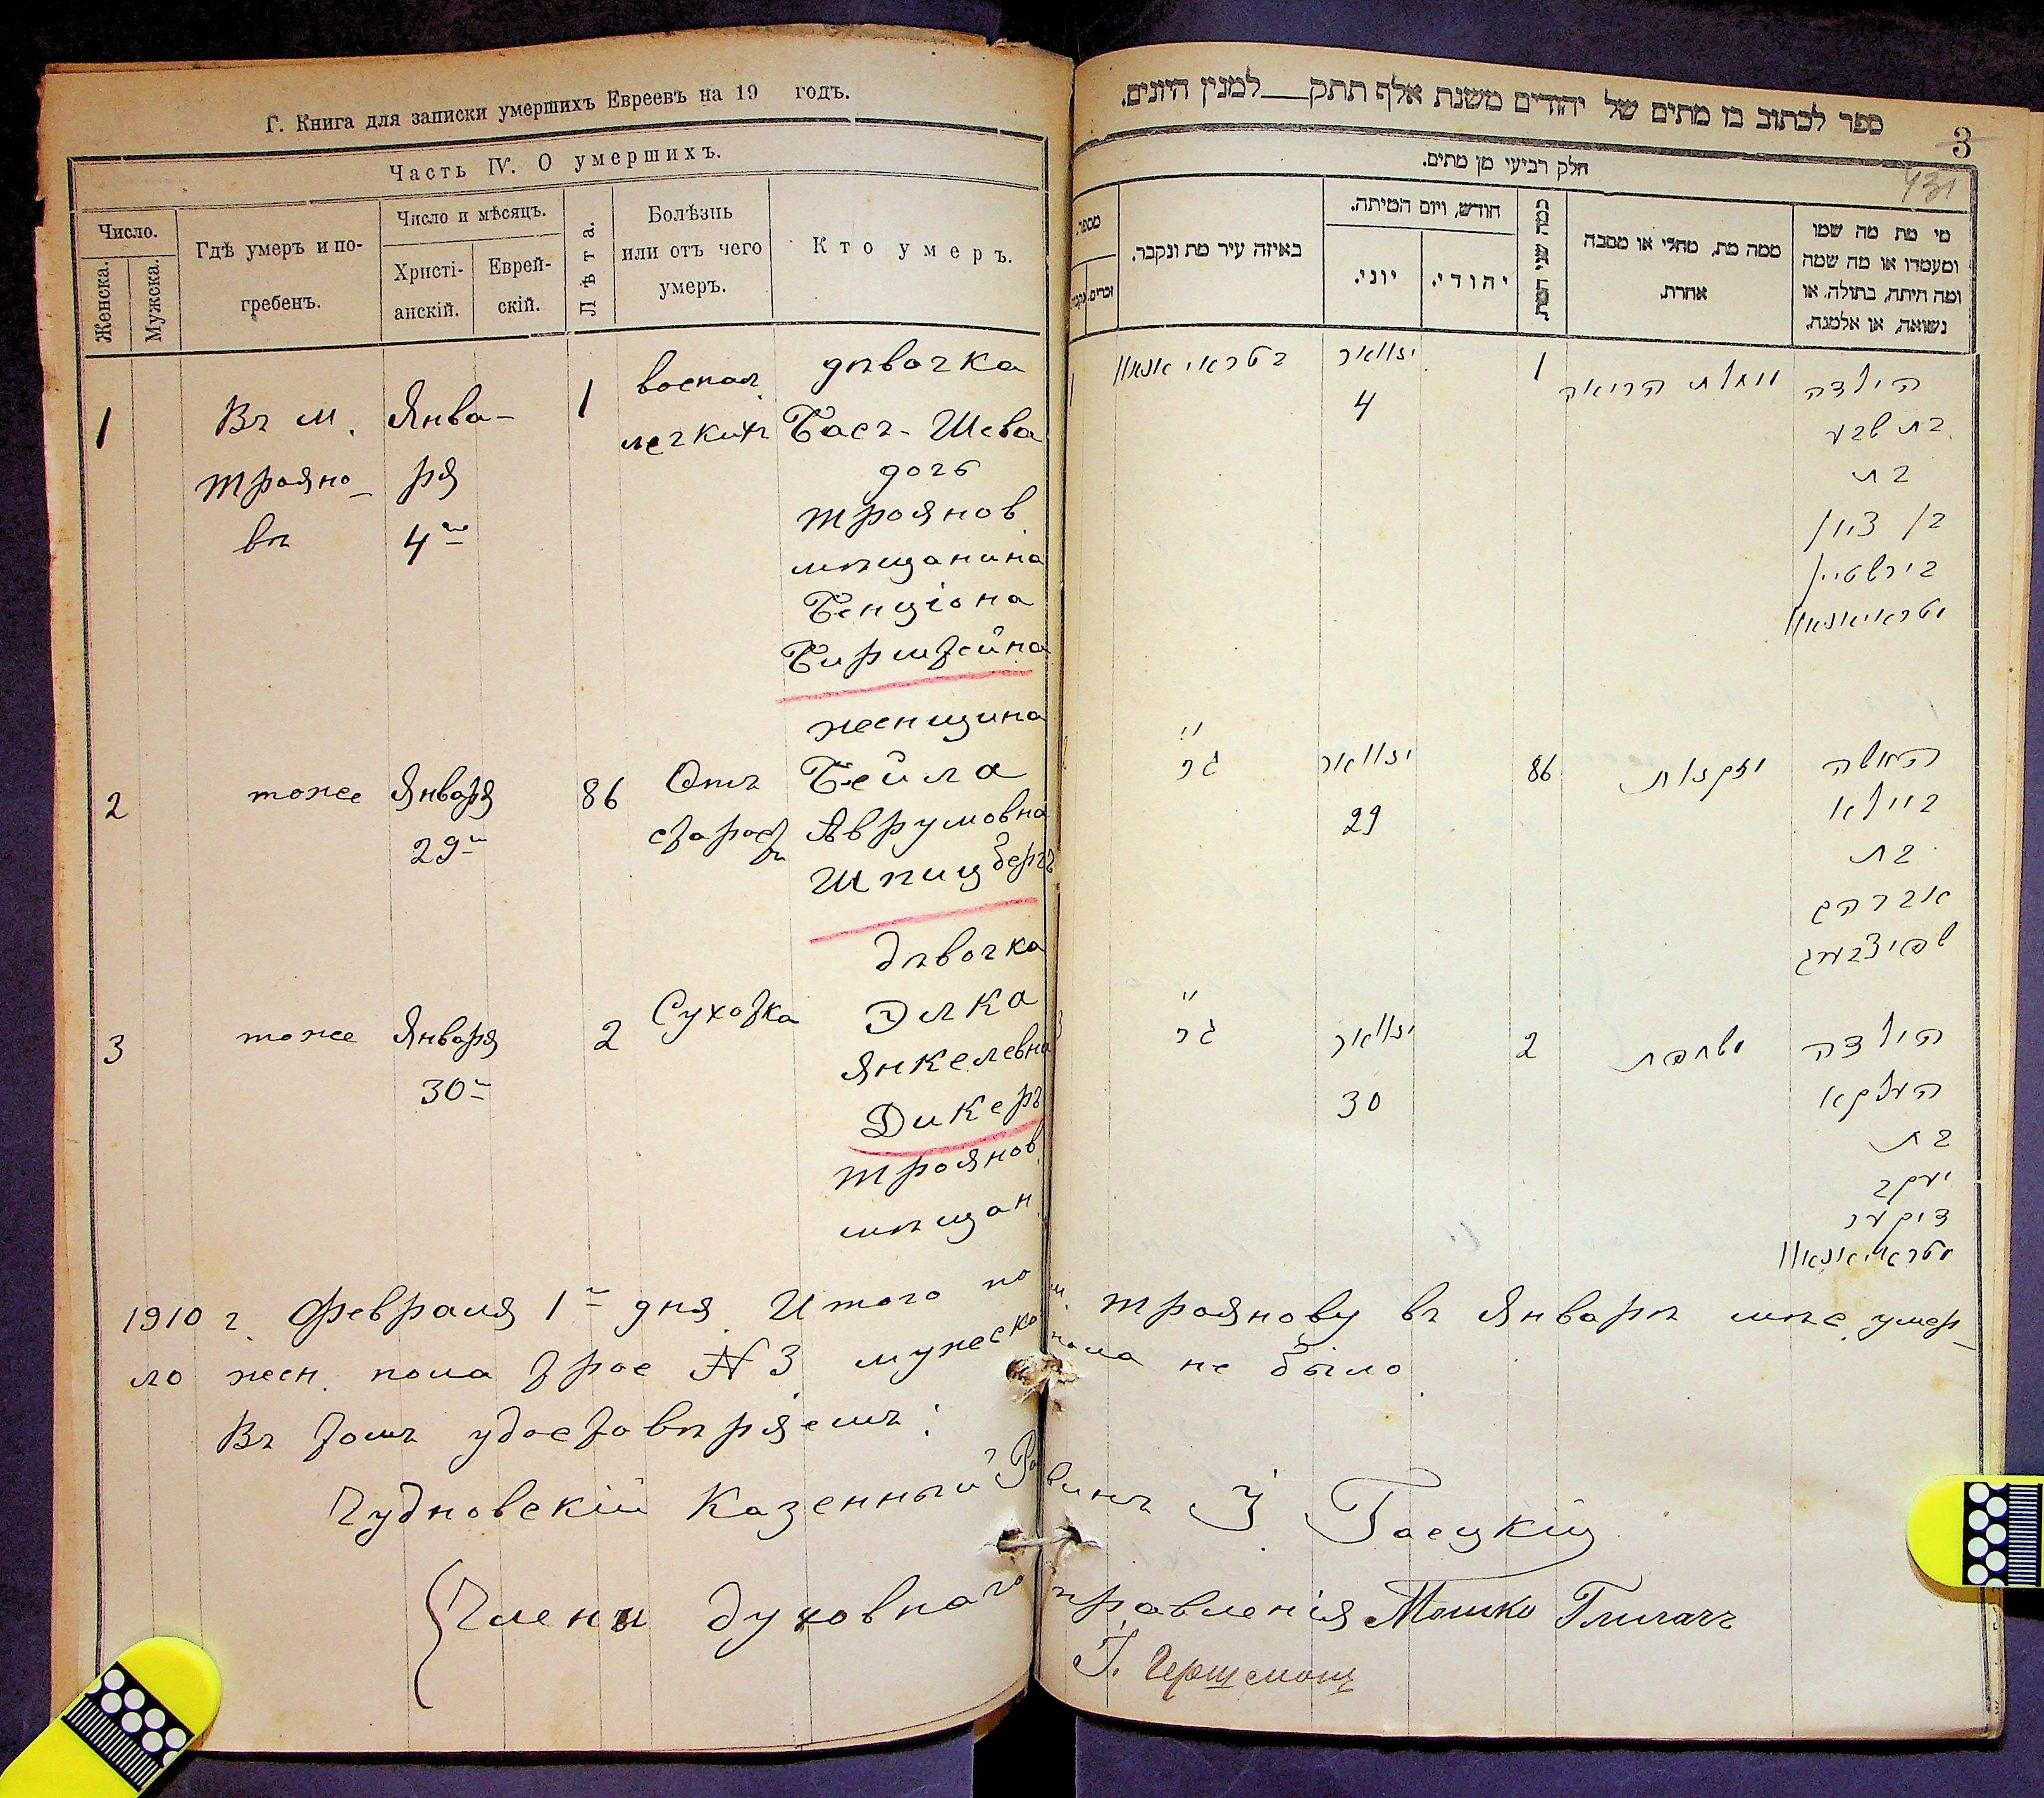 Г. Книга для записки умершихъ Евреевъ на 19 годъ.
Часть IV. О умершихъ.
Число.
Женска.
Мужска.
Гдѣ умеръ и по-
гребенъ.
Число и мѣсяцъ.
Христі-
анскій.
Еврей-
скій.
Лѣта.
Болѣзнь
или отъ чего
умеръ.
Кто умеръ.
1
Въ м.
Трояно-
вѣ
Янва-
ря
4го
1
воспал.
легкихъ
дѣвочка
Басъ-Шева
дочь
Троянов
мѣщанина
Бенціона
Бирштейна
2
тоже
Января
29го
86
Отъ
старост
женщина
Бейла
Аврумовна
Шпицбергъ
3
тоже
Января
30го
2
Сухотка
дѣвочка
Элка
Янкелевна
Дикеръ
Троянов.
мѣщан.
ספר לכתוב בו מתים של יהודים משנת אלף תתק__למנין היונים.
3
431
חלק רביעי מן מתים.
מספר.
זכרים.
נקבה
באיזה עיר מת ונקבר.
חודש, ויום המיתה.
יוני.
יהודי.
כמה שני המת
ממה מת, מחלי או מסבה
אחרת.
מי מת מה שמו
ומעמדו או מה שמה
ומה היתה, בתולה, או
נשואה, או אלמנה.
1
בטראיאנאוו
ינוואר
4
1
ממחלת הריאה
הילדה
בת שבע
בת
בן ציון
בירשטיין
מטראיאנאוו
גם
ינוואר
29
86
מזקנות
האשה
ביילא
בת
אברהם
שפיצבערג
3
גם
ינוואר
30
2
משחפת
הילדה
העלקא
בת
יעקב
דיקער
מטראיאנאוו
1910 г. Февраля 1го дня. Итого по м. Троянову въ Январѣ мѣс. умер-
ло жен. пола трое № 3 мужеско пола не было.
Въ томъ удостовѣряемъ:
Чудновскій Казенный Раввинъ І.
Члены духовнаго правленія Мошко